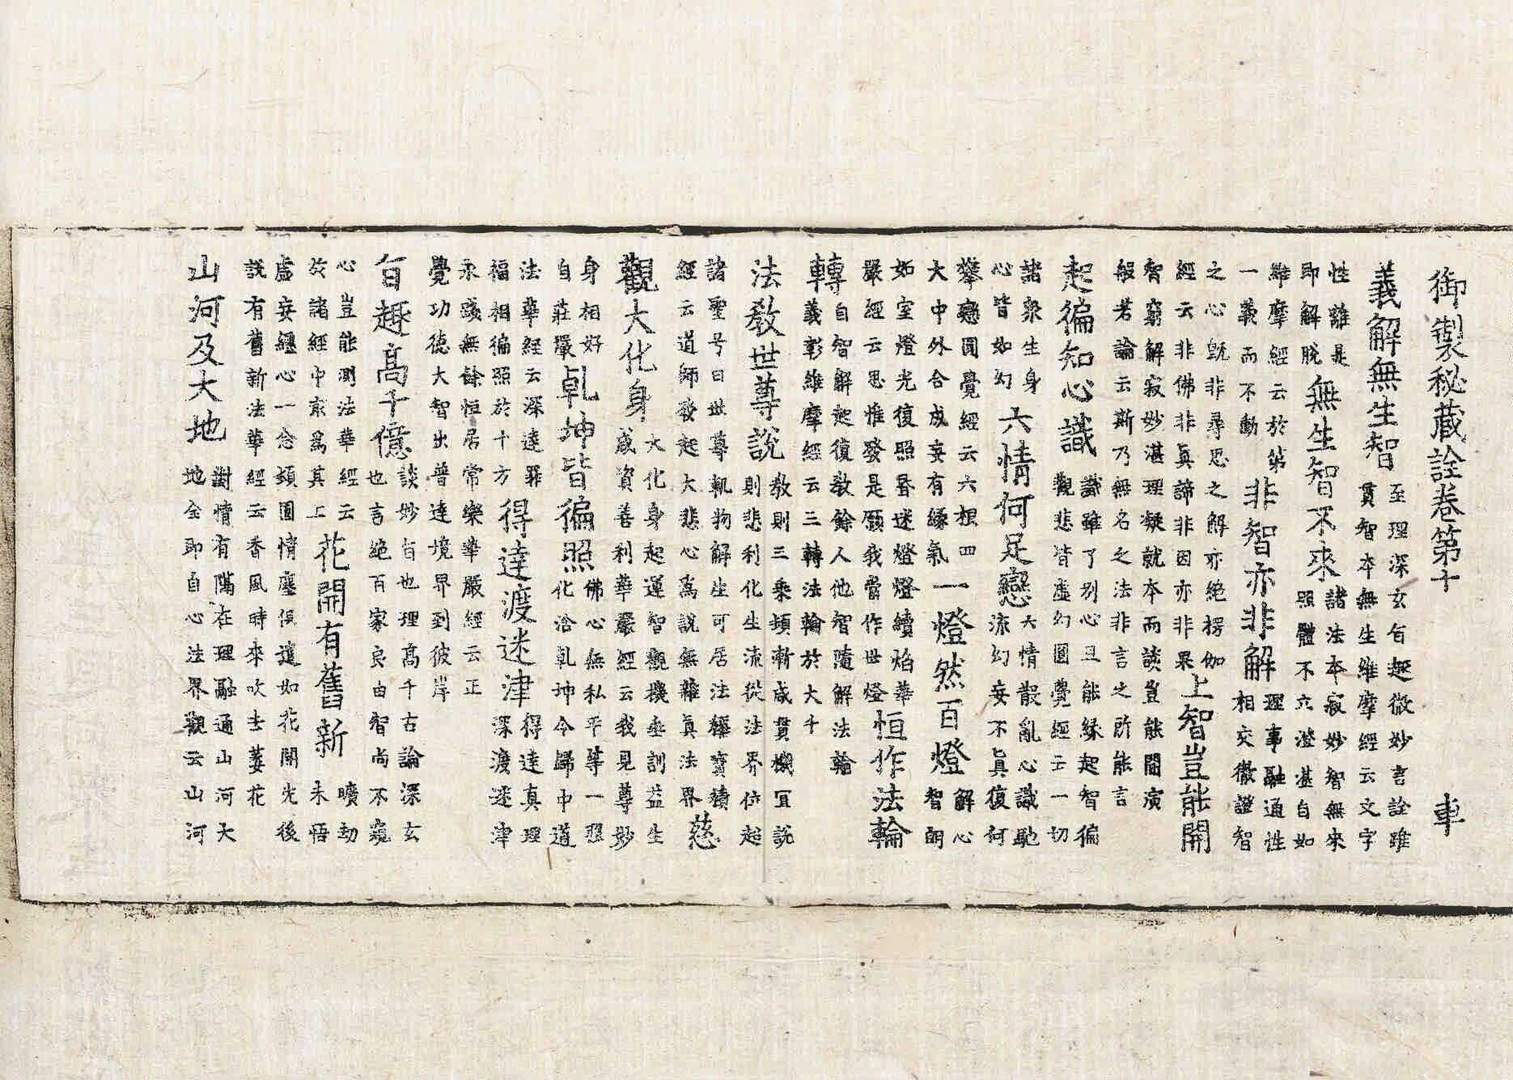 御製秘蔵詮卷第十 車
義解無生智
至理深玄旨趣微妙言詮雖
貫智本無生維摩經云文字
性離是
即解脫
無生智不來
諸法本寂妙智無來
照體不六澄湛自如
維摩經云於第
一義而不動
非智亦非解
理事融通性
相交徹證智
之心既非尋思之解亦絕楞伽
經云非佛非真諦非因亦非果
上智豈能開
智窮解寂妙湛理凝就本而談豈能開演
般若論云斯乃無名之法非言之所能言
起徧知心識
識雖了別心且能緣起智徧
觀悲皆虛幻圓覺經云一切
諸眾生身
心皆如幻
六情何足戀
六情散亂心識馳
流幻妄不真復何
攀戀圓覺經云六根四
大中外合成妄有緣氣
一燈然百燈
解心
智朗
如室燈光復照昏迷燈燈續焰華
嚴經云思惟發是願我當作世燈
恒作法輪
轉
自智解起復教餘人他智隨解法輪
義彰維摩經云三轉法輪於大千
法教世尊說
教則三乘頓漸咸貫機宜說
則悲利化生流從法界位起
諸聖号曰世尊軌物解生可居法輝寶積
經云道師發起大悲心為說無離真法界
慈
觀大化身
大化身起運智觀機垂訓益生
咸資善利華嚴經云我見尊妙
身相好
自莊嚴
乹坤皆徧照
佛心無私平等一照
化洽乹坤令歸中道
法華經云深達罪
福相徧照於十方
得達渡迷津
得達真理
深渡迷津
永踐無餘恒居常樂華嚴經云正
覺功德大智出普達境界到彼岸
旨趣高千億
談妙旨也理高千古論深玄
也言絕百家良由智尚不窺
心豈能測法華經云
於諸經中最為其上
花開有舊新
曠劫
未悟
虛妄纏心一念頓圓情塵俱遣如花開先後
說有舊新法華經云香風時來吹去萎花
山河及大地
對情有隔在理融通山河大
地全即自心法界觀云山河